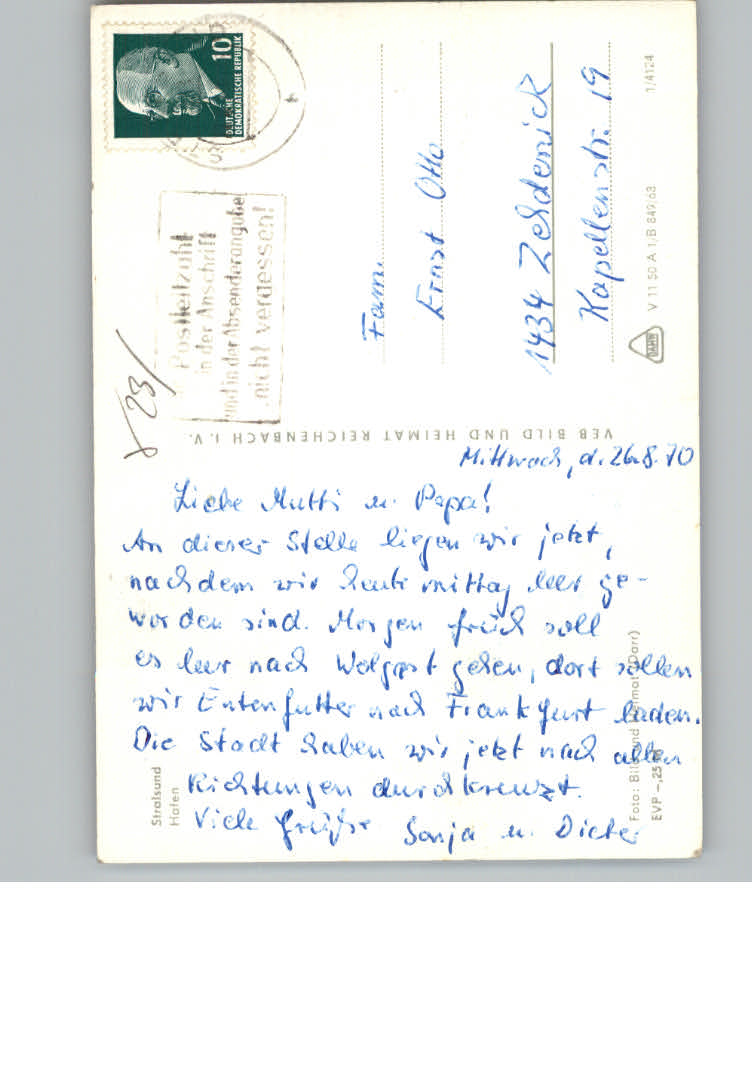 10
DEUTSCHE
DEMOKRATISCHE REPUBLIK
Postleitzahl
in der Anschrift
und in der Absenderangabe
nicht vergessen!
Fam.
Ernst Otto
1434 Zehdenick
Kapellenstr. 19
V 11 50 A 1/B 849/63
1/4124
DAHW
VEB BILD UND HEIMAT REICHENBACH I. V.
Mittwoch, d. 26.8.70
Liebe Mutti u. Papa!
An dieser Stelle liegen wir jetzt,
nachdem wir heute mittag leer ge-
worden sind. Morgen früh soll
es leer nach Wolgast gehen, dort sollen
wir Entenfutter nach Frankfurt laden.
Die Stadt haben wir jetzt nach allen
Richtungen durchkreuzt.
Viele Grüße Sonja u. Dieter
Stralsund
Hafen
Foto: Bild und Heimat (Darr)
EVP -,25